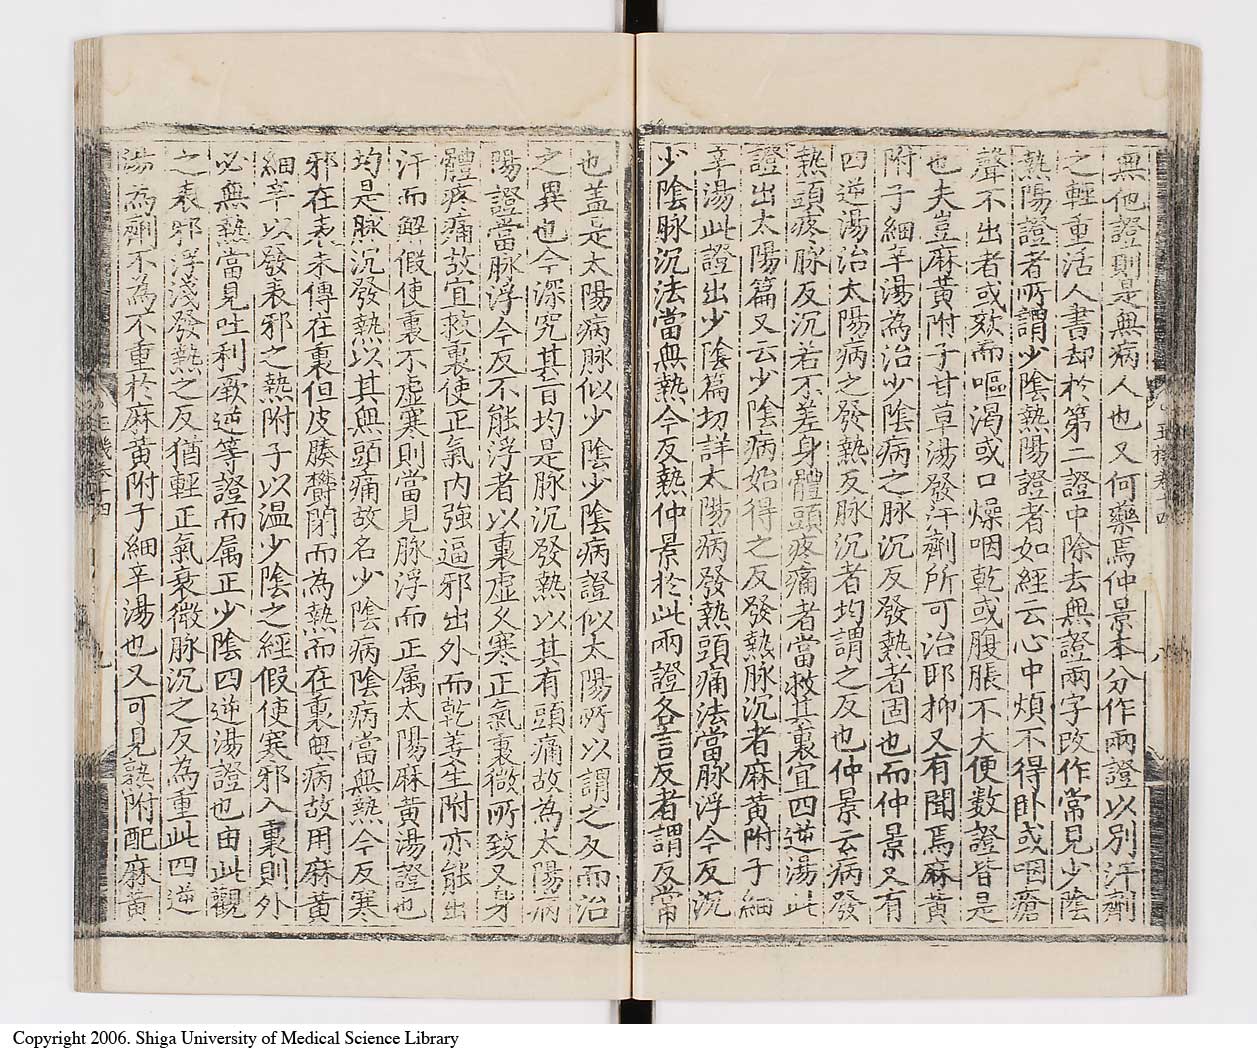 無他證則是無病人也又何藥焉仲景本分作兩證以別汗劑
之輕重活人書却於第二證中除去無證兩字改作常見少陰
熱陽證者所謂少陰熱陽證者如經云心中煩不得卧或咽瘡
聲不出者或欬而嘔渴或口燥咽乾或腹脹不大便數證皆是
也夫豈麻黃附子甘草湯發汗劑所可治耶抑又有聞焉麻黃
附子細辛湯為治少陰病之脉沉反發熱者固也而仲景又有
四逆湯治太陽病之發熱反脉沉者均謂之反也仲景云病發
熱頭疼脉反沉若不差身體頭疼痛者當救其裏宜四逆湯此
證出太陽篇又云少陰病始得之反發熱脉沉者麻黃附子細
辛湯此證出少陰篇切詳太陽病發熱頭痛法當脉浮今反沉
少陰脉沉法當無熱今反熱仲景於此兩證各言反者謂反常
也盖是太陽病脉似少陰少陰病證似太陽所以謂之反而治
之異也今深究其旨均是脉沉發熱以其有頭痛故為太陽病
陽證當脉浮今反不能浮者以裏虛久寒正氣衰微所致又身
體疼痛故宜救裏使正氣內強逼邪出外而乾姜生附亦能出
汗而解假使裏不虛寒則當見脉浮而正属太陽麻黃湯證也
均是脉沉發熱以其無頭痛故名少陰病陰病當無熱今反寒
邪在表未傳在裏但皮膜鬱閉而為熱而在裏無病故用麻黃
細辛以發表邪之熱附子以温少陰之經假使寒邪入裏則外
必無熱當見吐利厥逆等證而属正少陰四逆湯證也由此觀
之表邪浮淺發熱之反猶輕正氣衰微脉沉之反為重此四逆
湯為劑不為不重於麻黃附子細辛湯也又可見熟附配麻黃
玉機卷十四
八
玉機卷十四
九
Copyright 2006. Shiga University of Medical Science Library